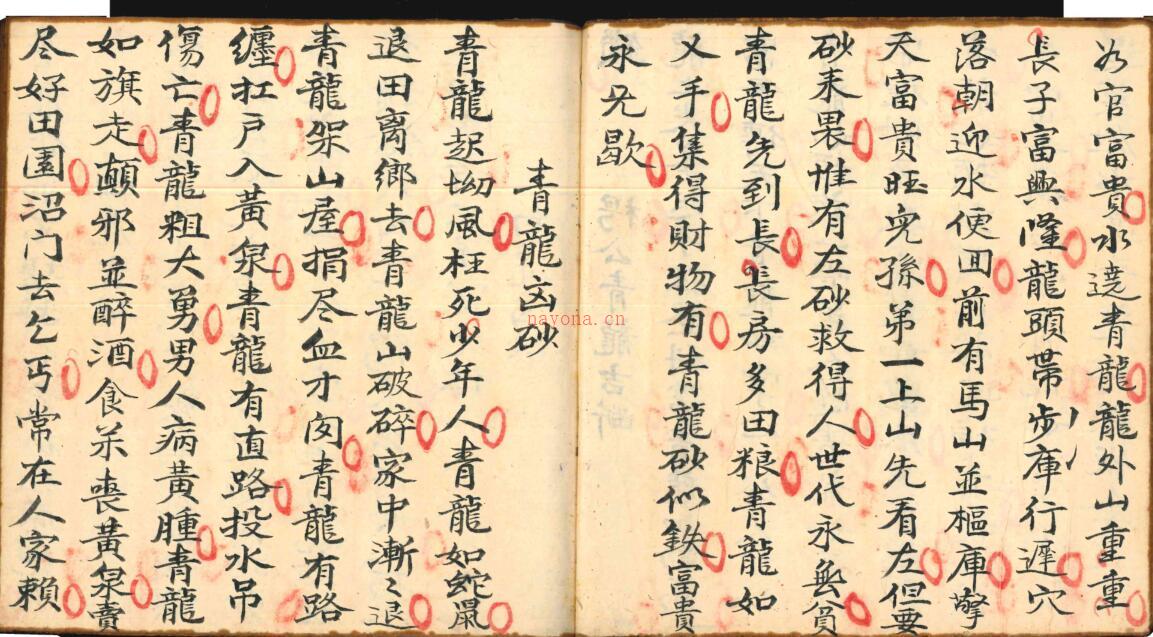 为官富貴水遶青龍龍外山重重
長子富興隆龍頭帶步庫行遲穴
落朝迎水便囬前有馬山並樞庫擎
天富貴旺兒孫第一上山先看左但要
砂来畏惟有左砂救得人世代永無貧
青龍先到長長房多田粮青龍如
乂手集得財物有青龍砂似鉄富貴
永兄歇
青龍凶砂
青龍起坳風枉死少年人青龍如蛇鼠
退田离鄉去青龍山破碎家中漸〻退
青龍架山屋損尽血才囱青龍有路
纏扛戶入黃泉青龍有直路投水吊
傷亡青龍粗大勇男人病黃腫青龍
如旗走顛邪並醉酒食茶喪黃泉賣
尽好田園沿门去乞丐常在人家賴
nayona.cn